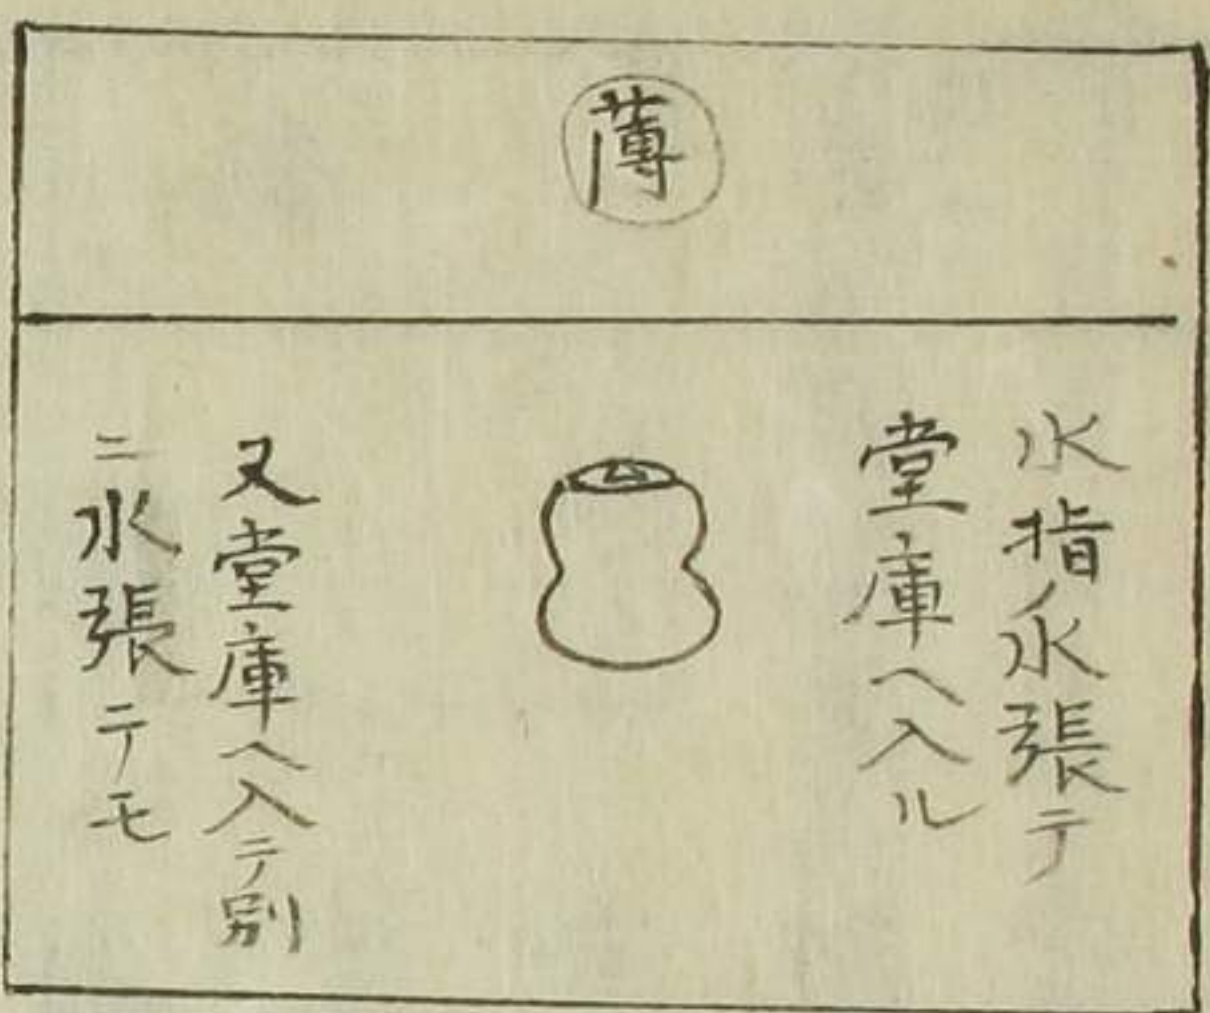 薄
水指水張テ
堂庫ヘ入ル
又堂庫ヘ入テ別
ニ水張テモ